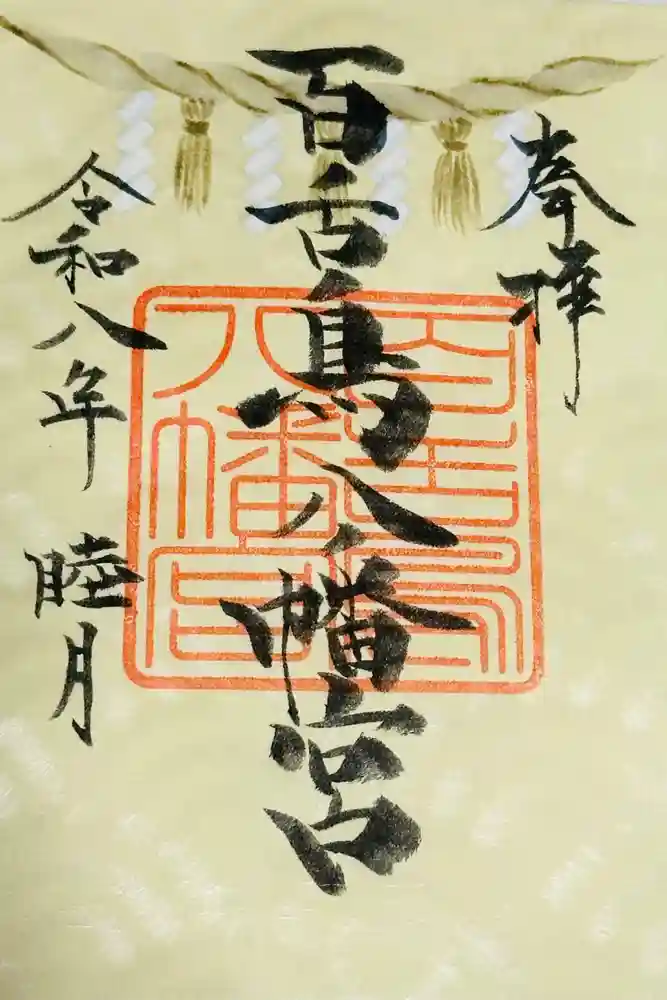 奉拝
百舌鳥八幡宮
令和八年 睦月
百舌鳥
八幡宮